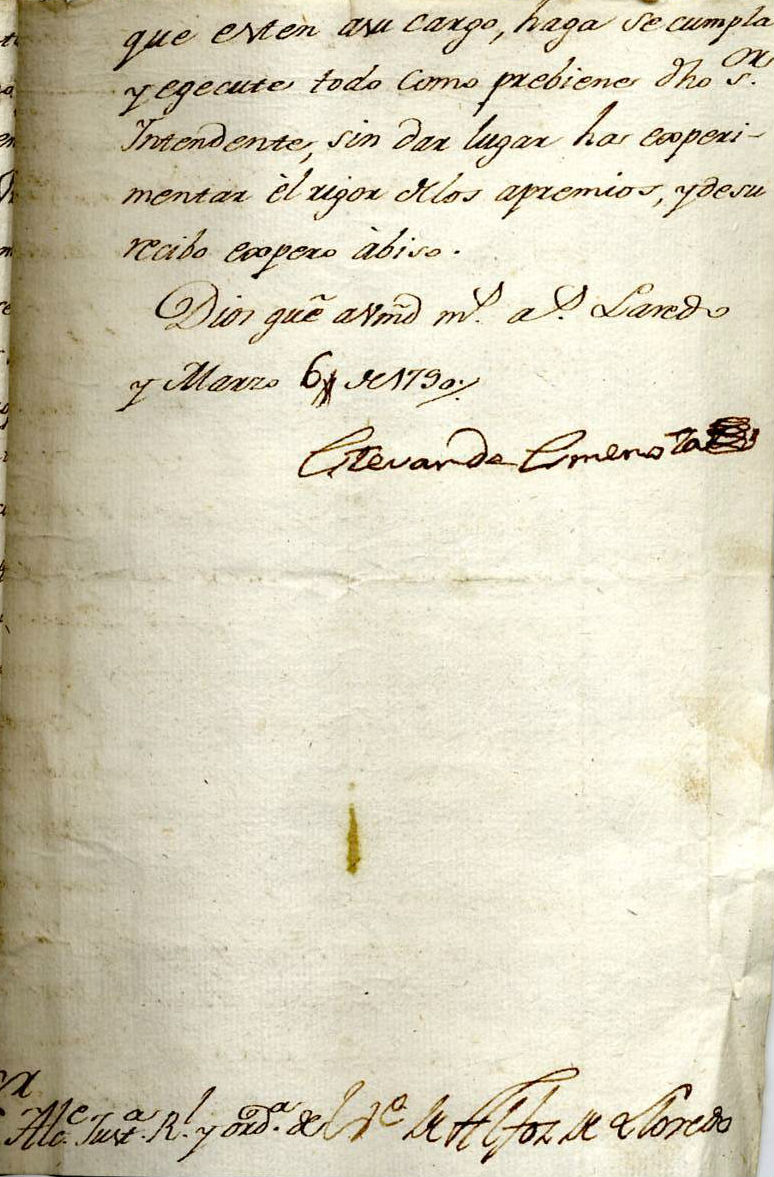 que esten a su cargo, haga se cumpla
y egecute todo como prebiene dho S.or
Intendente, sin dar lugar ha experi-
mentar èl rigor de los apremios, y de su
recibo expero àbiso.
Dios gue. a Vmd m.s a.s Laredo
y Marzo 6 de 1790,,
Estevan de Amenosta
Alc.e Just.a R.l y ord.a del V.e de Alfoz de Lloredo